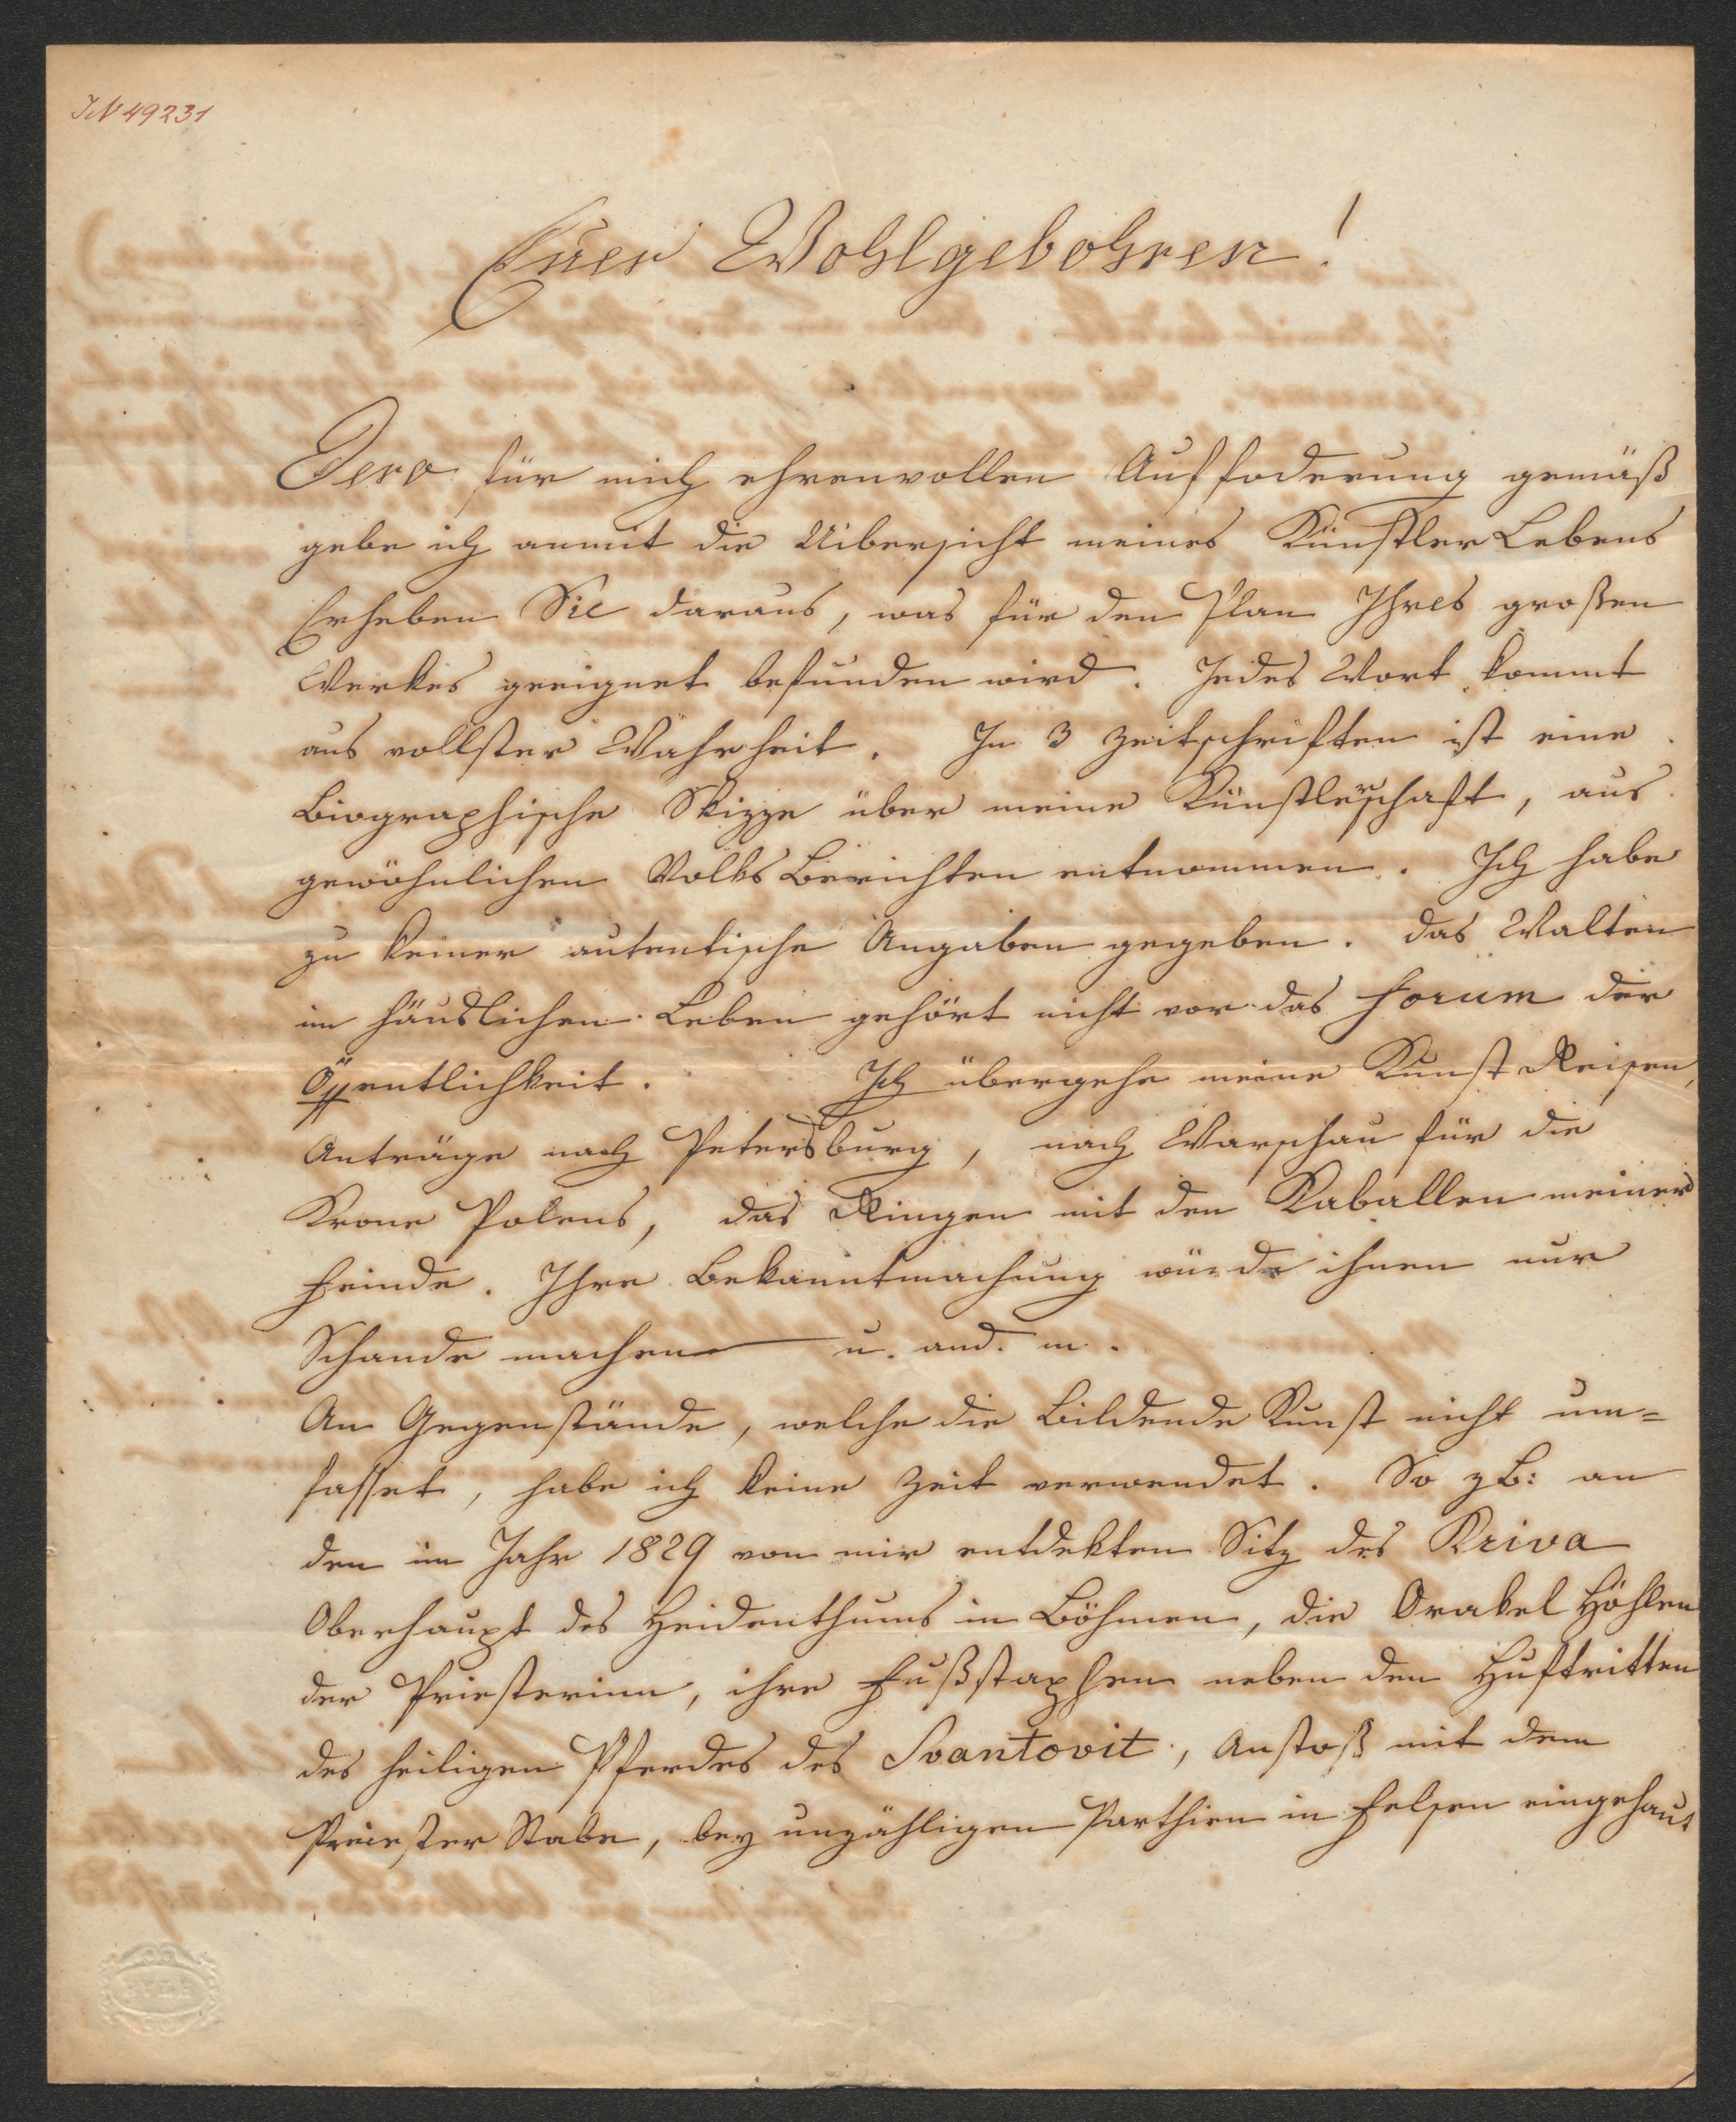 IN 49231
Euer Wohlgebohren!
Dero für mich ehrenvollen Auffoderung gemäß
gebe ich anmit die Uibersicht meines Künstler Lebens
Erheben Sie daraus, was für den Plan Ihres großen
Werkes geeignet befunden wird. Jedes Wort kommt
aus vollster Wahrheit. In 3 Zeitschriften ist eine
Biographische Skizze über meine Künstlerschaft, aus
gewöhnlichen Volks Berichten entnommen. Ich habe
zu keiner autentische Angaben gegeben. Das Walten
im häuslichen Leben gehört nicht vor das Forum der
Öffentlichkeit. Ich übergehe meine Kunst Reisen,
Anträge nach Petersburg, nach Warschau für die
Krone Polens, das Ringen mit den Kaballen meiner
Feinde. Ihre Bekanntmachung würde ihnen nur
Schande machen u. and. m.
An Gegenstände, welche die Bildende Kunst nicht um=
fasset, habe ich keine Zeit verwendet. So zB: an
den im Jahr 1829 von mir entdekten Sitz des Kriva
Oberhaupt des Heidenthums in Böhmen, die Orakel Höhlen
der Priesterinn, ihre Fußstapfen neben den Huftritten
des heiligen Pferdes des Svantovit, Anstoß mit dem
Priester Stabe, bey unzähligen Parthien in Felsen eingehaut